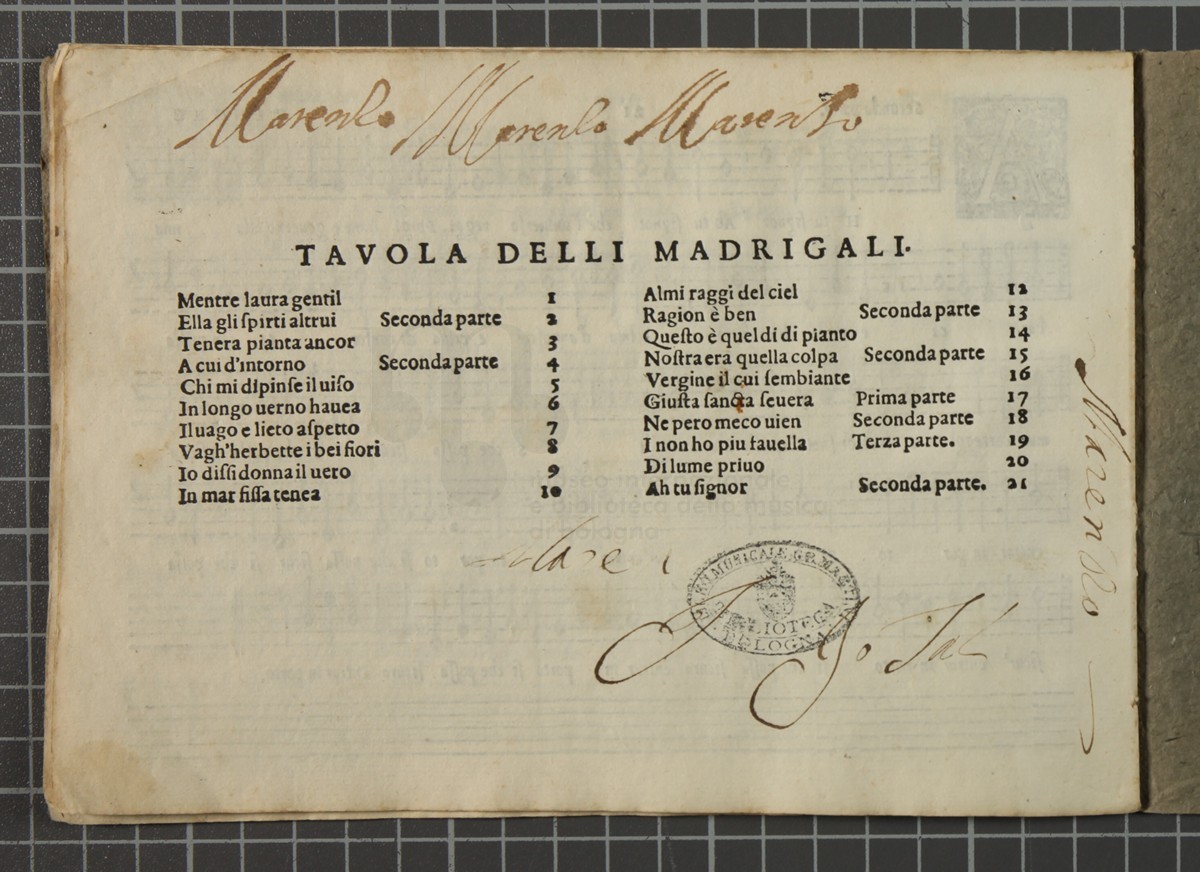 Marenso Marenso Marenso
TAVOLA DELLI MADRIGALI.
Mentre laura gentil 1
Ella gli ſpirti altrui Seconda parte 2
Tenera pianta ancor 3
A cui d'intorno Seconda parte 4
Chi mi dipinſe il uiſo 5
In longo uerno hauea 6
Il uago e lieto aſpetto 7
Vagh'herbette i bei fiori 8
Io diſſi donna il uero 9
In mar fiſſa tenea 10
Almi raggi del ciel 12
Ragion è ben Seconda parte 13
Queſto è quel di di pianto 14
Noſtra era quella colpa Seconda parte 15
Vergine il cui ſembiante 16
Giuſta ſancta ſeuera Prima parte 17
Ne pero meco uien Seconda parte 18
I non ho piu fauella Terza parte. 19
Di lume priuo 20
Ah tu ſignor Seconda parte. 21
museo internazionale
e biblioteca della musica
di bologna
BIBLIOTECA
BOLOGNA